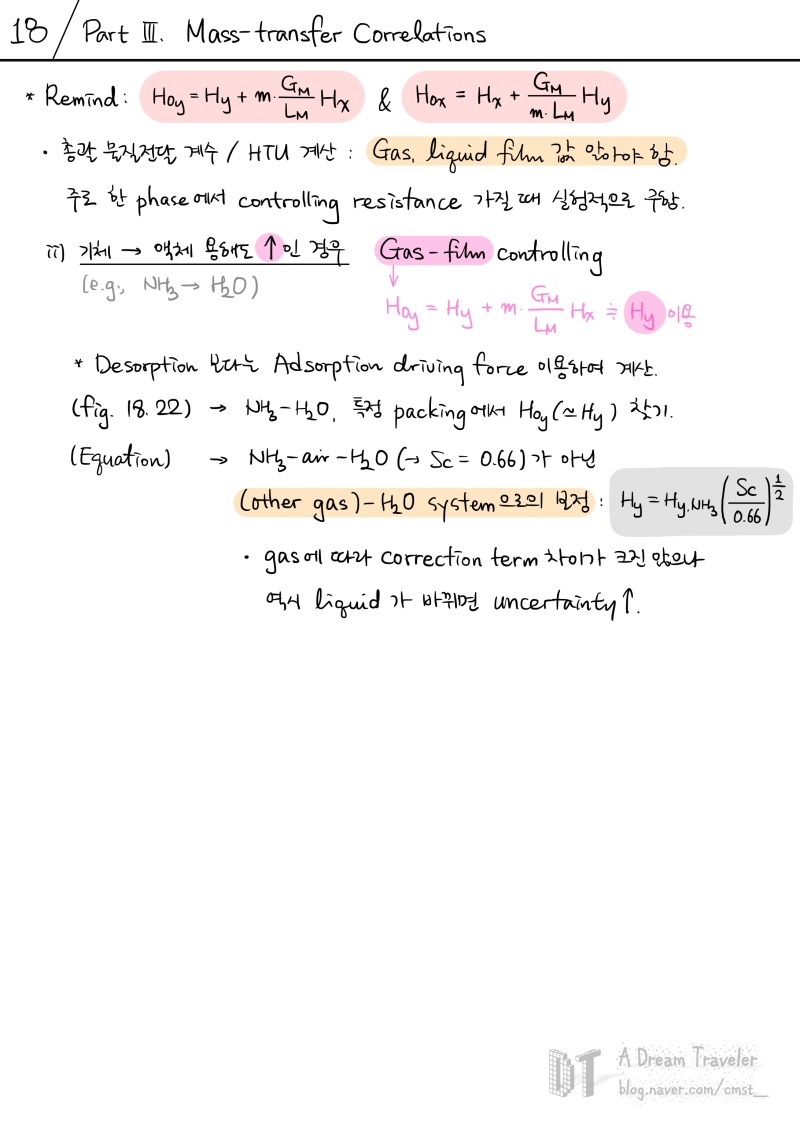 18 / Part Ⅲ. Mass-transfer Correlations
* Remind : H_Oy = H_y + m·\frac{G_M}{L_M} H_x & H_Ox = H_x + \frac{G_M}{m·L_M} H_y
· 총괄 물질전달 계수 / HTU 계산 : Gas, liquid film 값 알아야 함.
주로 한 phase에서 controlling resistance 가질 때 실험적으로 구함.
ii) 기체 → 액체 용해도 ↑인 경우 Gas-film controlling
(e.g., NH₃ → H₂O)
H_Oy = H_y + m·\frac{G_M}{L_M} H_x ≒ H_y 이용
* Desorption 보다는 Adsorption driving force 이용하여 계산.
(fig. 18.22) → NH₃-H₂O, 특정 packing에서 H_Oy(≃H_y) 찾기.
(Equation) → NH₃-air-H₂O (→ Sc = 0.66)가 아닌
(other gas)-H₂O system으로의 보정 : H_y = H_{y,NH₃} (\frac{Sc}{0.66})^{\frac{1}{2}}
· gas에 따라 correction term 차이가 크진 않으나
역시 liquid가 바뀌면 uncertainty↑.
DT A Dream Traveler
blog.naver.com/cmst__